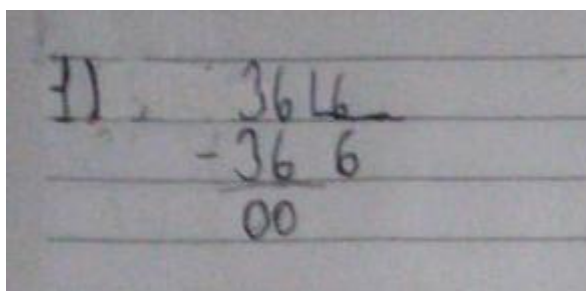 1) 36 6
- 36 6
00